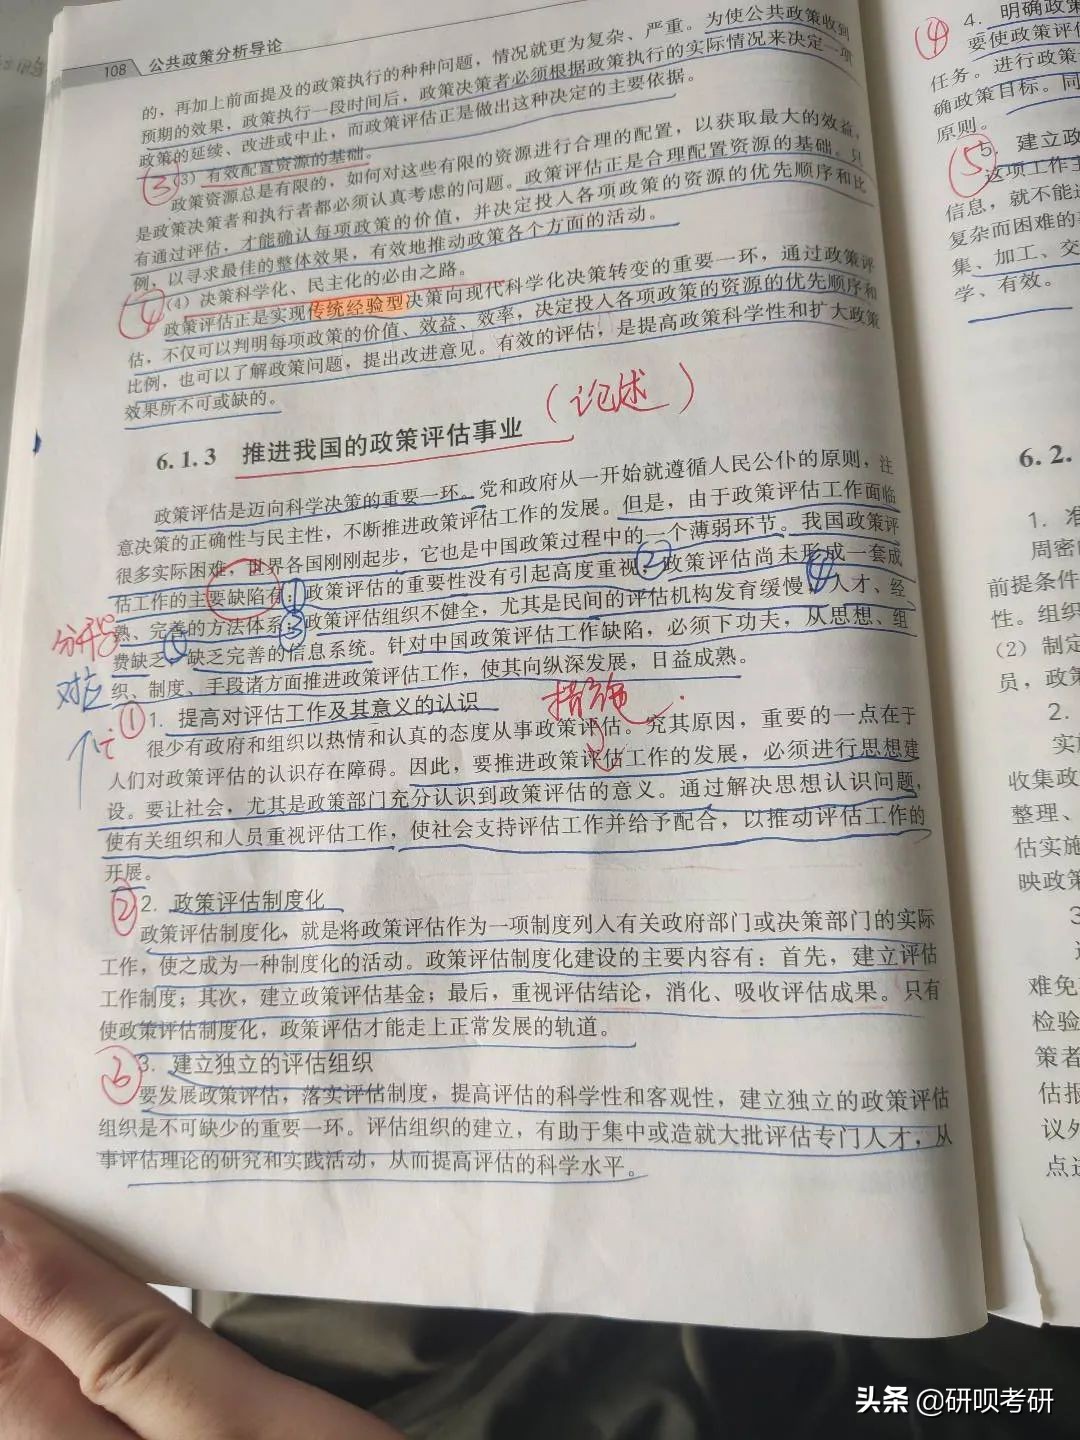 108 公共政策分析导论
的，再加上前面提及的政策执行的种种问题，情况就更为复杂、严重。为使公共政策收到
预期的效果，政策执行一段时间后，政策决策者必须根据政策执行的实际情况来决定一项
政策的延续、改进或中止，而政策评估正是做出这种决定的主要依据。
③ (3) 有效配置资源的基础。
政策资源总是有限的，如何对这些有限的资源进行合理的配置，以获取最大的效益，
是政策决策者和执行者都必须认真考虑的问题。政策评估正是合理配置资源的基础。只
有通过评估，才能确认每项政策的价值，并决定投入各项政策的资源的优先顺序和比
例，以寻求最佳的整体效果，有效地推动政策各个方面的活动。
④ (4) 决策科学化、民主化的必由之路。
政策评估正是实现传统经验型决策向现代科学化决策转变的重要一环，通过政策评
估，不仅可以判明每项政策的价值、效益、效率，决定投入各项政策的资源的优先顺序和
比例，也可以了解政策问题，提出改进意见。有效的评估，是提高政策科学性和扩大政策
效果所不可或缺的。
6.1.3 推进我国的政策评估事业 (论述)
政策评估是迈向科学决策的重要一环。党和政府从一开始就遵循人民公仆的原则，注
意决策的正确性与民主性，不断推进政策评估工作的发展。但是，由于政策评估工作面临
很多实际困难，世界各国刚刚起步，它也是中国政策过程中的一个薄弱环节。我国政策评
估工作的主要缺陷有：①政策评估的重要性没有引起高度重视；②政策评估尚未形成一套成
熟、完善的方法体系；③政策评估组织不健全，尤其是民间的评估机构发育缓慢；④人才、经
费缺乏；缺乏完善的信息系统。针对中国政策评估工作缺陷，必须下功夫，从思想、组
织、制度、手段诸方面推进政策评估工作，使其向纵深发展，日益成熟。
对应
措施
① 1. 提高对评估工作及其意义的认识
很少有政府和组织以热情和认真的态度从事政策评估。究其原因，重要的一点在于
人们对政策评估的认识存在障碍。因此，要推进政策评估工作的发展，必须进行思想建
设。要让社会，尤其是政策部门充分认识到政策评估的意义。通过解决思想认识问题，
使有关组织和人员重视评估工作，使社会支持评估工作并给予配合，以推动评估工作的
开展。
② 2. 政策评估制度化
政策评估制度化，就是将政策评估作为一项制度列入有关政府部门或决策部门的实际
工作，使之成为一种制度化的活动。政策评估制度化建设的主要内容有：首先，建立评估
工作制度；其次，建立政策评估基金；最后，重视评估结论，消化、吸收评估成果。只有
使政策评估制度化，政策评估才能走上正常发展的轨道。
3. 建立独立的评估组织
要发展政策评估，落实评估制度，提高评估的科学性和客观性，建立独立的政策评估
组织是不可缺少的重要一环。评估组织的建立，有助于集中或造就大批评估专门人才，从
事评估理论的研究和实践活动，从而提高评估的科学水平。
④ 4. 明确政策
要使政策评估
任务。进行政策
确政策目标。同
原则。
⑤ 5. 建立政
这项工作主
信息，就不能
复杂而困难的
集、加工、交
学、有效。
6.2.
1. 准
周密
前提条件
性。组织
(2) 制定
员，政策
2.
实施
收集政
整理、
估实施
映政策
3
难免
检验
策者
估报
议外
点
头条 @研呗考研